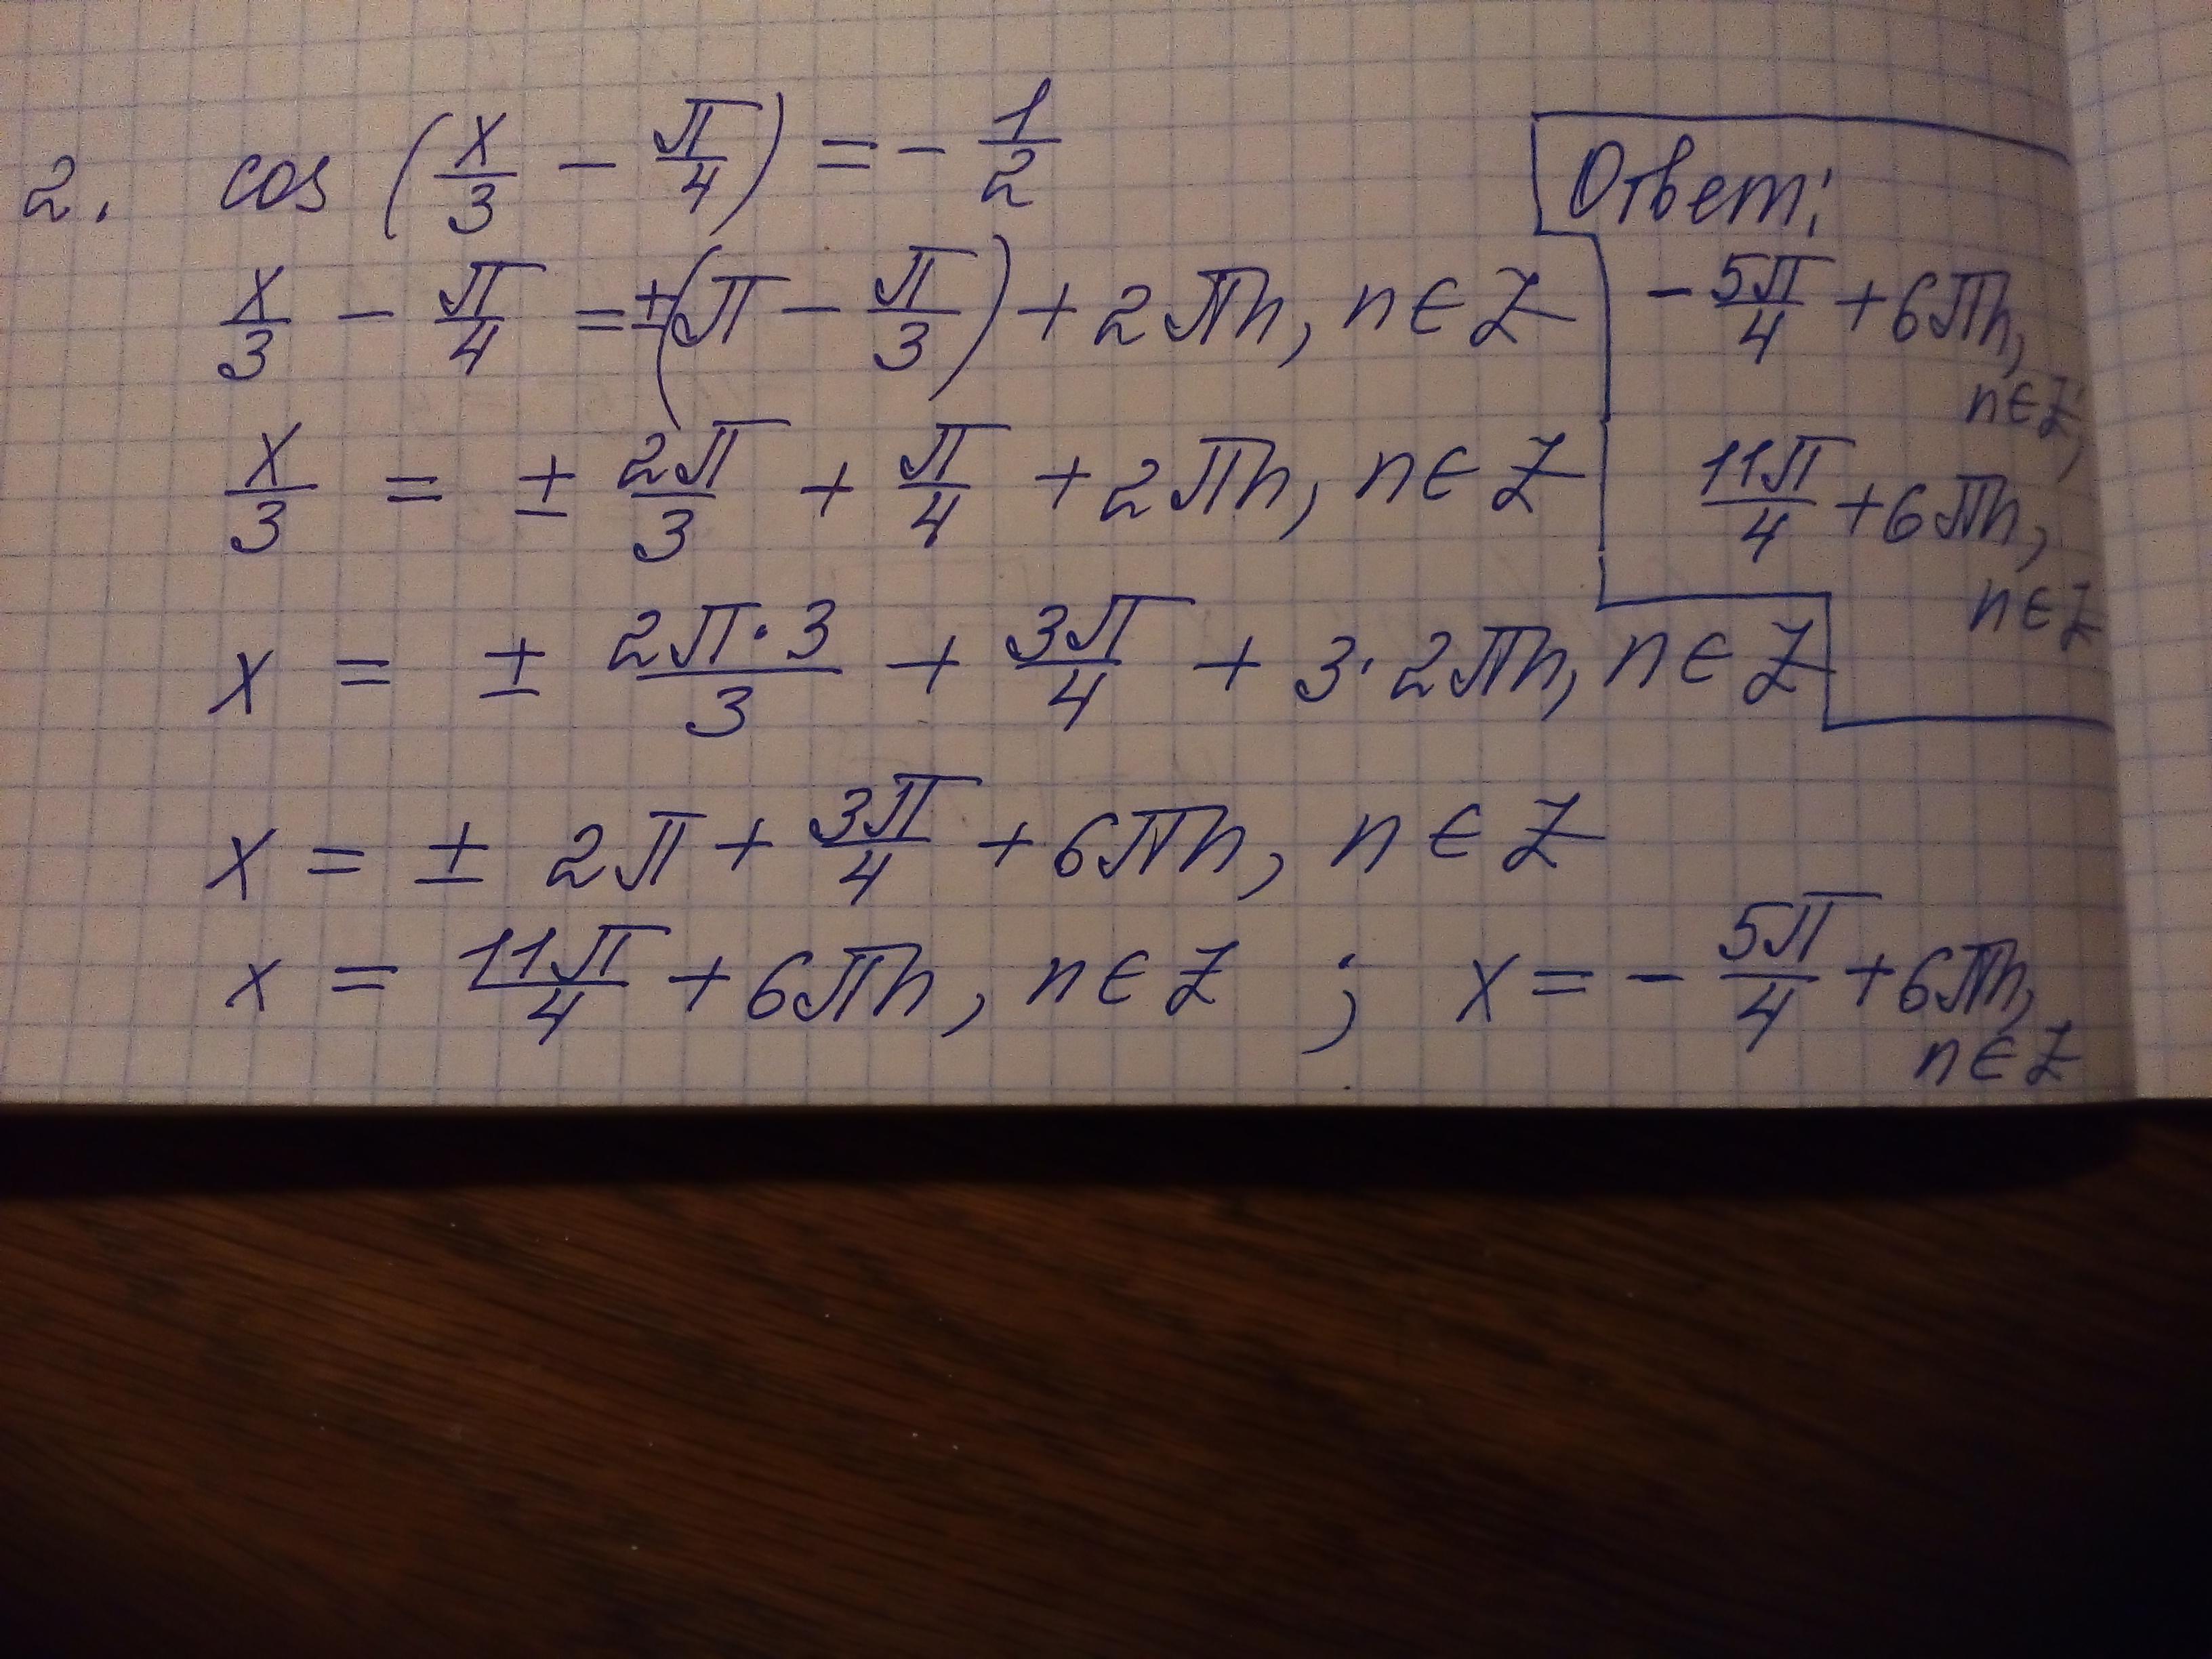 2. cos (x/3 - π/4) = - 1/2
x/3 - π/4 = ±(π - π/3) + 2πn, n ∈ Z
x/3 = ± 2π/3 + π/4 + 2πn, n ∈ Z
x = ± 2π·3/3 + 3π/4 + 3·2πn, n ∈ Z
x = ± 2π + 3π/4 + 6πn, n ∈ Z
x = 11π/4 + 6πn, n ∈ Z ; x = - 5π/4 + 6πn,
n ∈ Z
Ответ:
- 5π/4 + 6πn,
n ∈ Z;
11π/4 + 6πn,
n ∈ Z